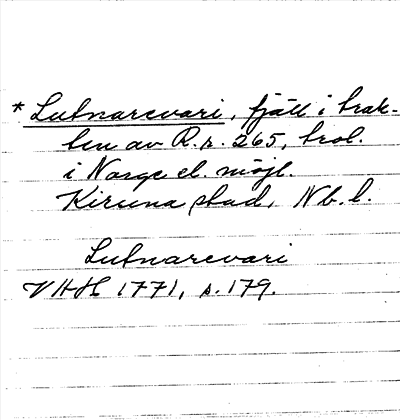 * Lubnarevari, fjäll i trak-
ten av R.r. 265, trol.
i Norge el. möjl.
Kiruna stad, Nb. l.
Lubnarevari
VHH 1771, s. 179.